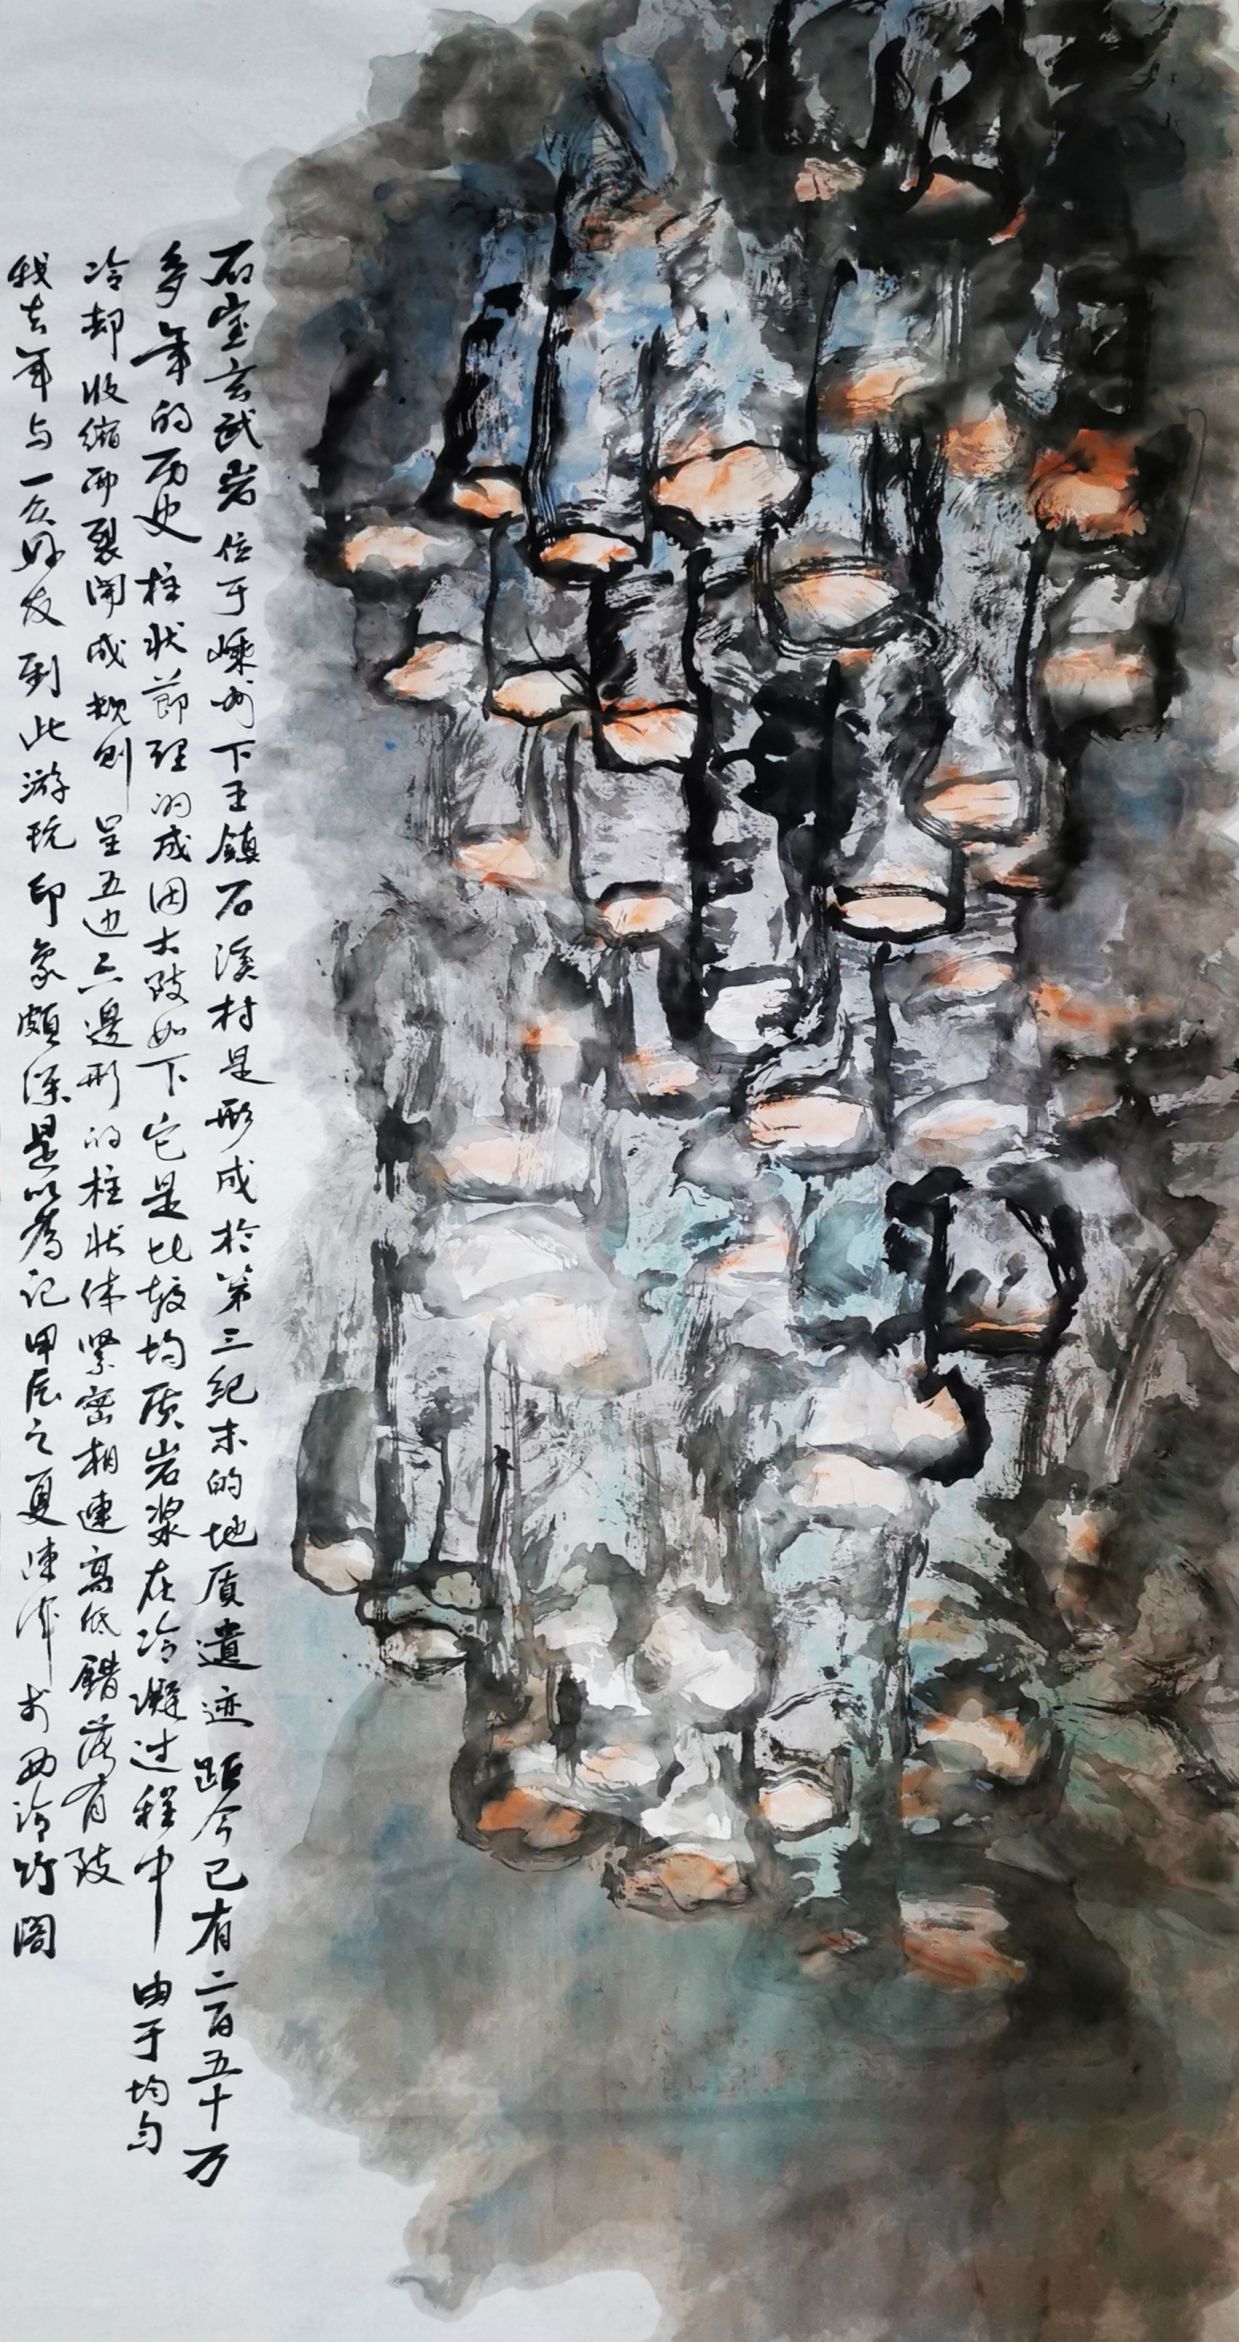 石室玄武岩位于嵊州下王鎮石溪村是形成於第三纪末的地质遺迹距今已有二百五十万
多年的历史柱状節理的成因大致如下它是比较均质岩漿在冷凝过程中由于均匀
冷却收缩而裂開成规则呈五边六邊形的柱状体紧密相連高低錯落有致
我去年与一众好友到此游玩印象颇深是以為记甲辰之夏连沣于西泠竹阁